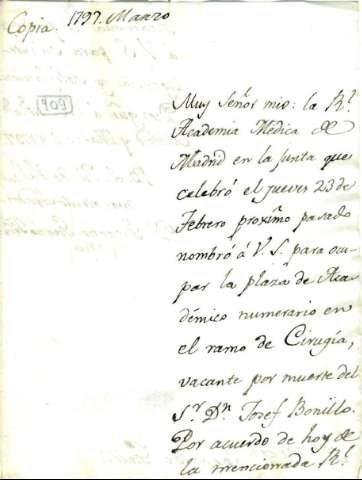 Copia. 1797. Marzo
409
Muy Señor mio: la Rl.
Academia Medica de
Madrid en la junta que
celebró el jueves 23 de
Febrero proximo pasado
nombró á V. S. para ocu-
par la plaza de Aca-
démico numerario en
el ramo de Cirugía,
vacante por muerte del
Sr. Dn. Josef Bonillo.
Por acuerdo de hoy de
la mencionada Rl.